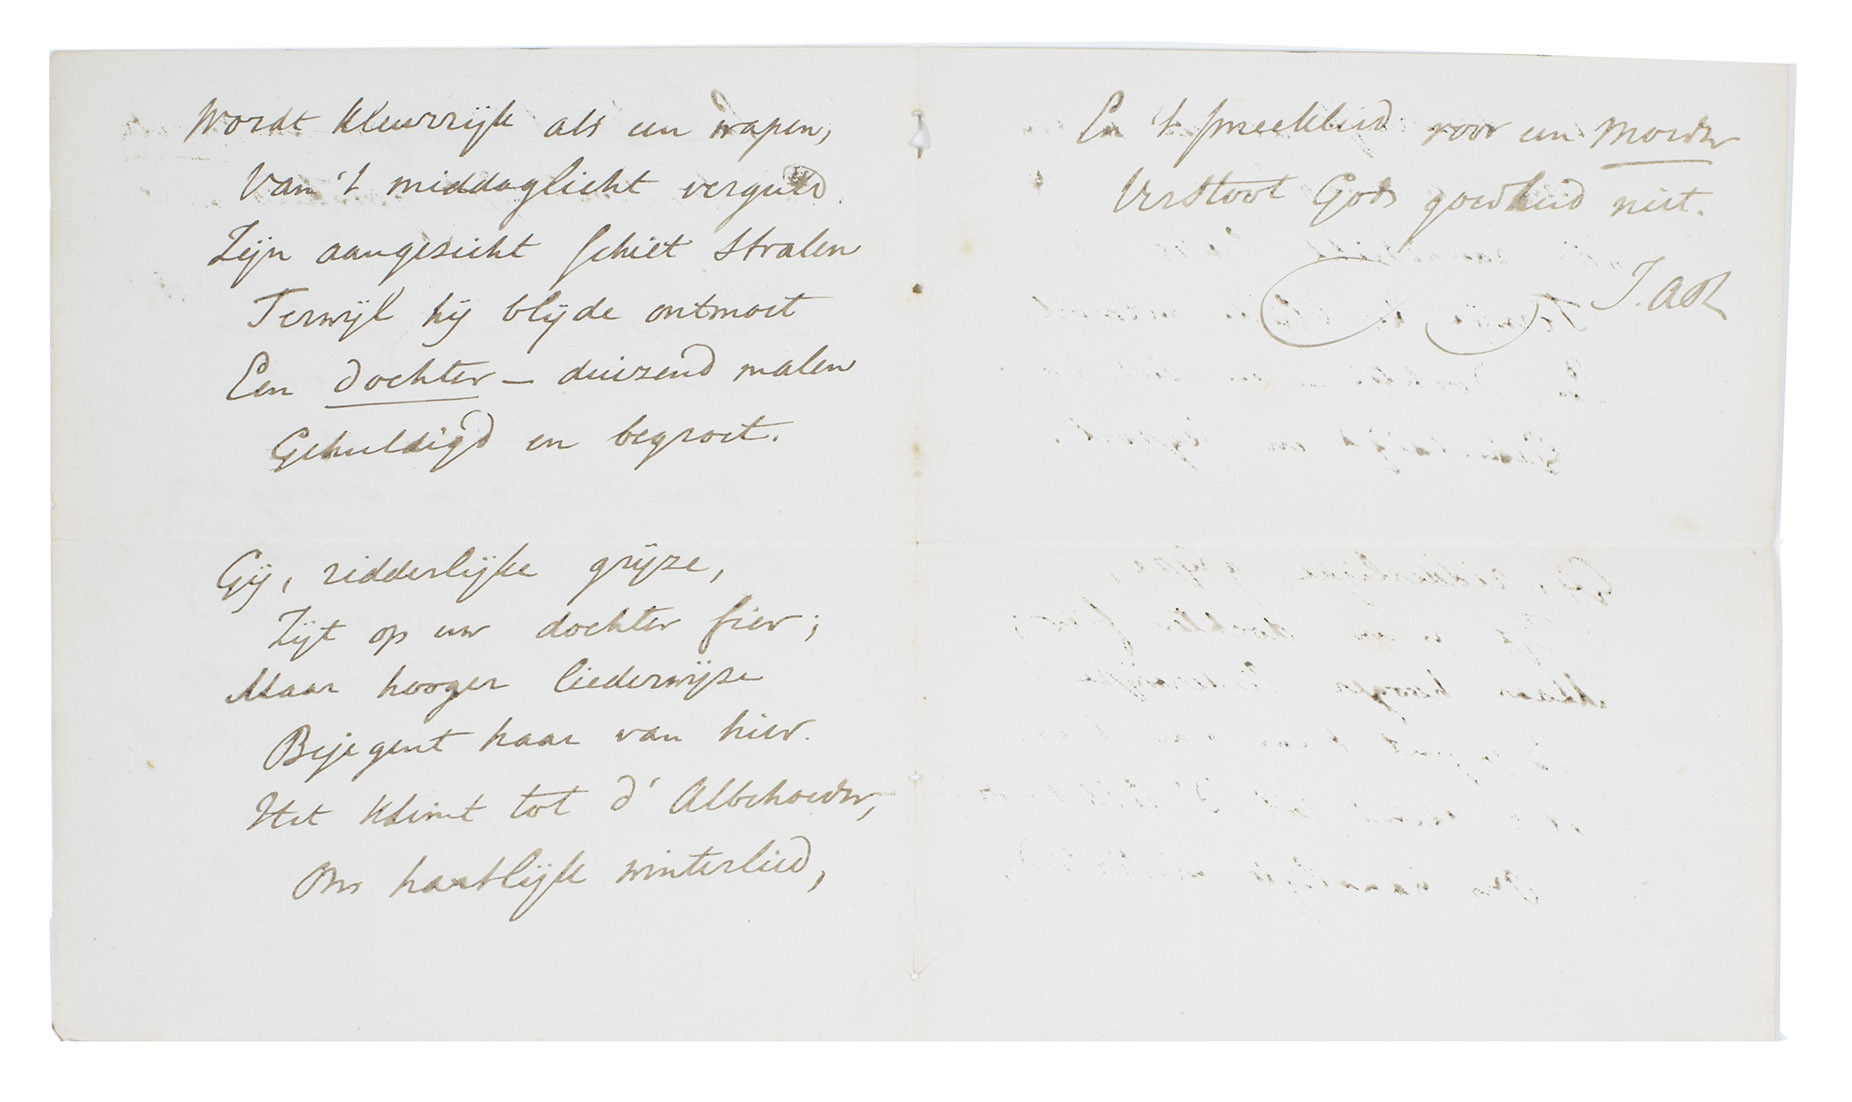 Wordt kleurrijk als een wapen,
Van 't middaglicht verguld.
Zijn aangezicht schiet stralen
Terwijl hij blijde ontmoet
Een dochter – duizend malen
Gehuldigd en begroet.
Gij, ridderlijke grijze,
Zijt op uw dochter fier;
Maar hooger liederwijze
Bejegent haar van hier.
Het klimt tot d' Albehoeder,
Ons hartlijk winterlied,
En 't smeeklied voor een moeder
Verstoot Gods goedheid niet.